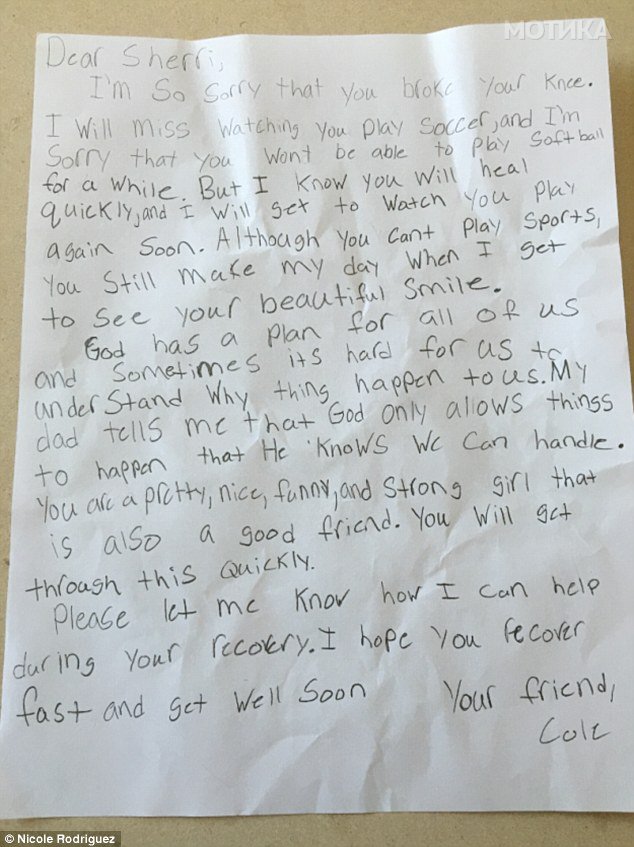 МОТИКА
Dear Sherri,
I'm So Sorry that you broke your knee.
I Will miss Watching You Play Soccer, and I'm
Sorry that you Wont be able to Play Softball
for a While. But I Know you Will heal
quickly, and I Will get to Watch You Play
again Soon. Although You Cant Play Sports,
You Still make my day When I get
to See your beautiful Smile.
God has a Plan for all of us
and Sometimes its hard for us to
understand Why thing happen to us. My
dad tells me that God only allows things
to happen that He Knows We Can handle.
You are a pretty, nice, funny, and Strong girl that
is also a good friend. You Will get
through this Quickly.
Please let me Know how I Can help
during Your recovery. I hope You recover
fast and get Well Soon
Your friend,
Cole
© Nicole Rodriguez